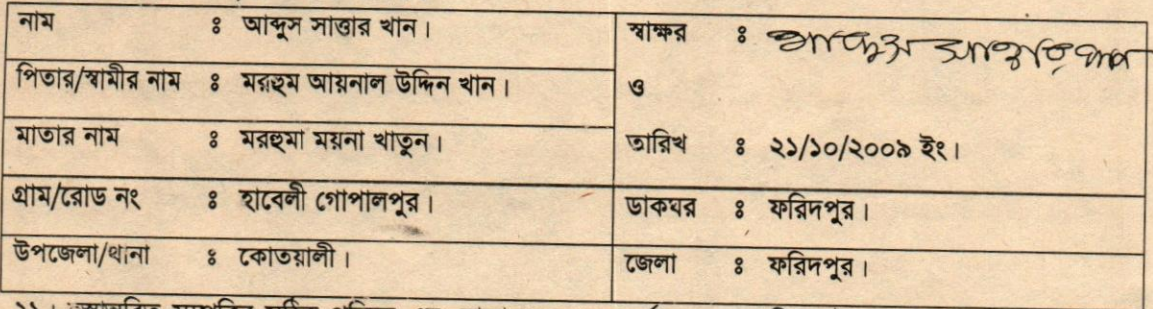 নাম ঃ আব্দুস সাত্তার খান।
স্বাক্ষর ঃ আব্দুস সাত্তার খান
পিতার/স্বামীর নাম ঃ মরহুম আয়নাল উদ্দিন খান।
ও
মাতার নাম ঃ মরহুমা ময়না খাতুন।
তারিখ ঃ ২১/১০/২০০৯ ইং।
গ্রাম/রোড নং ঃ হাবেলী গোপালপুর।
ডাকঘর ঃ ফরিদপুর।
উপজেলা/থানা ঃ কোতয়ালী।
জেলা ঃ ফরিদপুর।